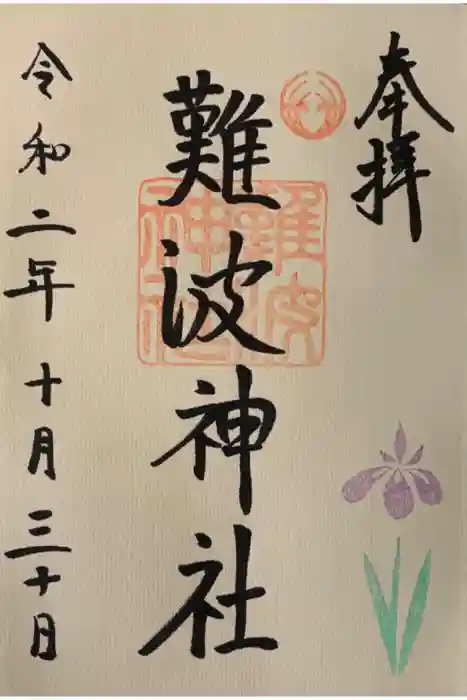 奉拝
難波神社
難波神社
令和二年十月三十日